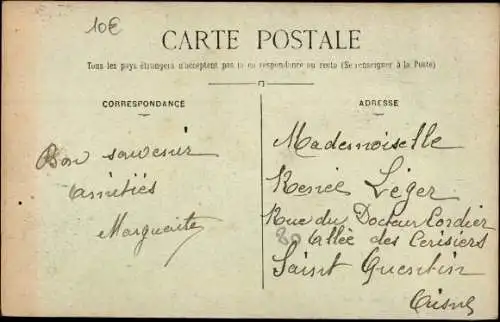 10€
CARTE POSTALE
Tous les pays étrangers n'acceptent pas la correspondance au recto (Se renseigner à la Poste)
CORRESPONDANCE
ADRESSE
Bon souvenir
amitiés
Marguerite
Mademoiselle
Renée Léger
Rue du Docteur Cordier
80 Allée des Cerisiers
Saint Quentin
Aisne